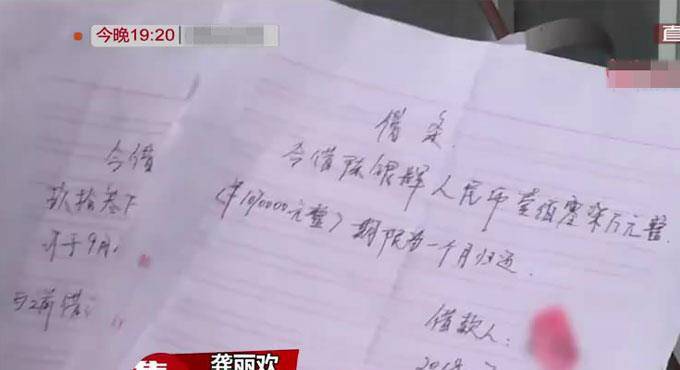 今晚19:20
直
借条
今借陈银人民币壹佰零柒万元整
(¥1070000元整)期限为一个月归还.
借款人:
2018.
今借
玖拾叁
于9月
龚丽欢